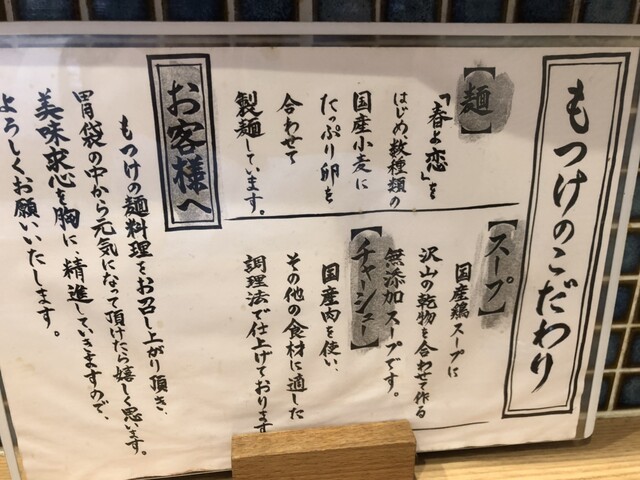 もつけのこだわり
【麺】
「春よ恋」を
はじめ数種類の
国産小麦に
たっぷり卵を
合わせて
製麺しています。
【スープ】
国産鶏スープに
沢山の乾物を合わせて作る
無添加スープです。
【チャーシュー】
国産肉を使い、
その他の食材に適した
調理法で仕上げております
お客様へ
もつけの麺料理をお召し上がり頂き、
胃袋の中から元気になって頂けたら嬉しく思います。
美味求心を胸に精進していきますので、
よろしくお願いいたします。